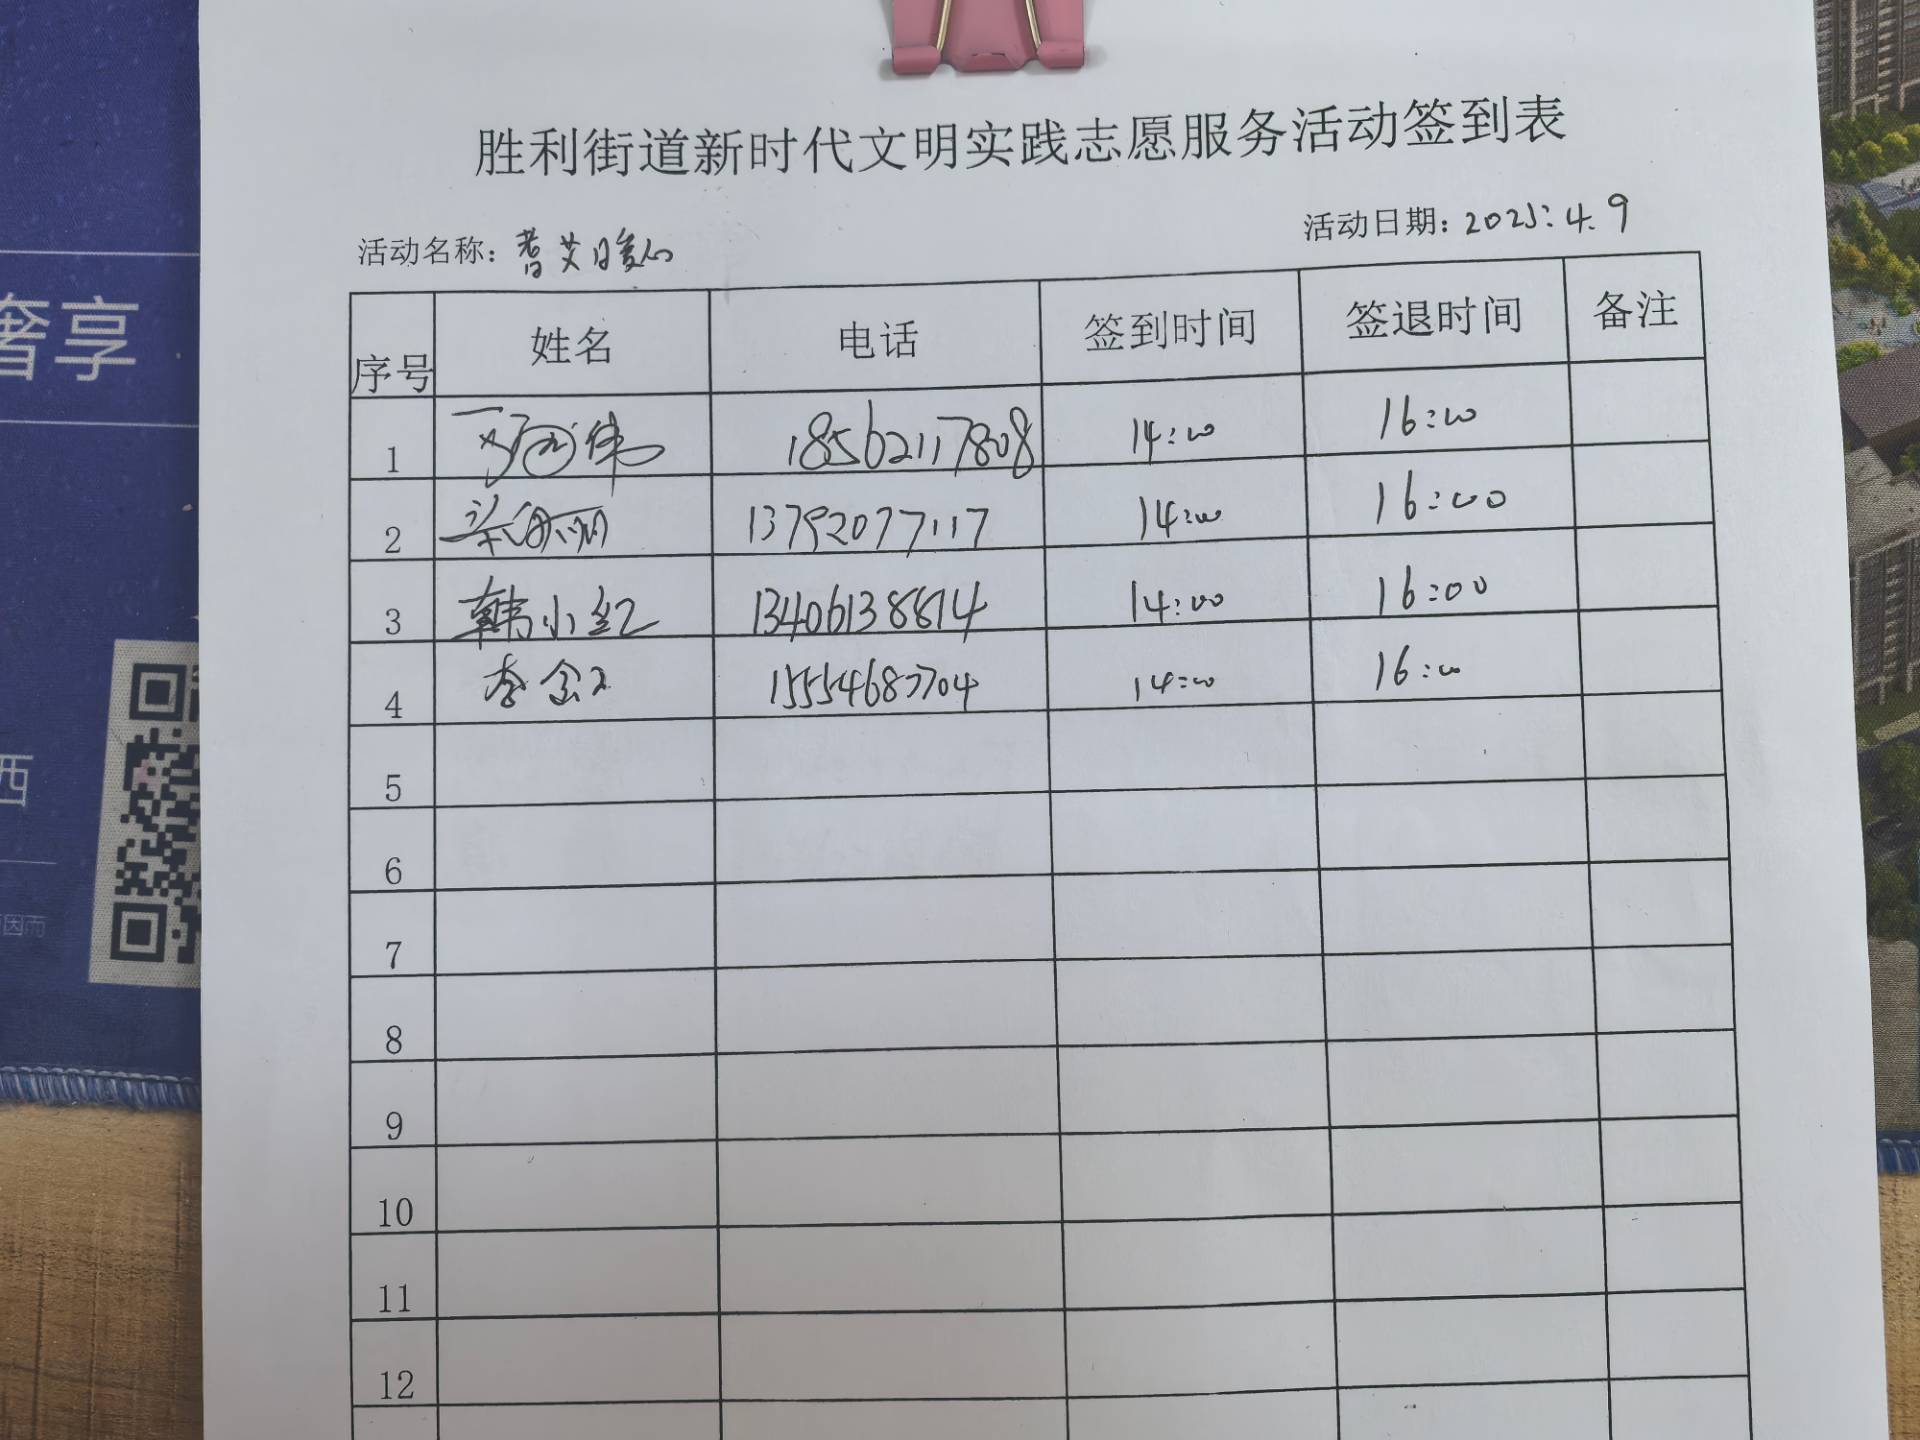 胜利街道新时代文明实践志愿服务活动签到表
活动名称：耆艾暖心
活动日期：2025.4.9
序号 姓名 电话 签到时间 签退时间 备注
1 伟 18562117808 14:00 16:00
2 13792077117 14:00 16:00
3 韩小红 13406138814 14:00 16:00
4 李金 15554683704 14:00 16:00
5
6
7
8
9
10
11
12
奢享
西
因而